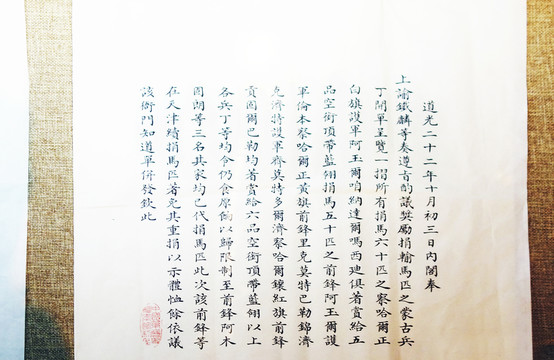 道光二十二年十月初三日内閣奉
上諭鐵麟等奏遵旨酌議奬勵捐輸馬匹之蒙古兵
丁開單呈覽一摺所有捐馬六十匹之察哈爾正
白旗護軍阿玉爾咱納達爾嗎西廸俱著賞給五
品空銜頂帶藍翎捐馬五十匹之前鋒阿玉爾護
軍倫本察哈爾正黃旗前鋒里克莫特巴勒錦濟
克濟特護軍齊莫特多爾濟察哈爾鑲紅旗前鋒
貢圖爾巴勒均著賞給六品空銜頂帶藍翎以上
各兵丁等均令仍食原餉以歸限制至前鋒阿木
固朗等三名其家均已代捐馬匹此次該前鋒等
在天津續捐馬匹著免其重捐以示體恤餘依議
該衙門知道單併發欽此